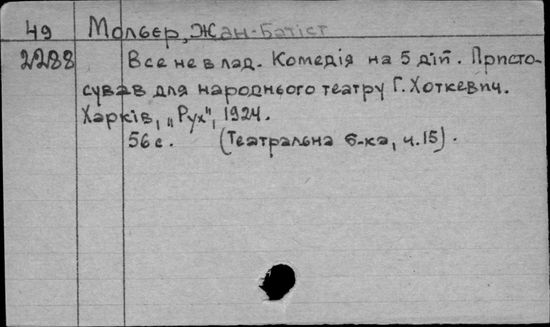 49 Мольєр, Жан-Батіст
2288 Все не в лад. Комедія на 5 дій. Присто-
сував для народнього театру Г. Хоткевич.
Харків, „Рух", 1924.
56 с. (Театральна б-ка, ч. 15).